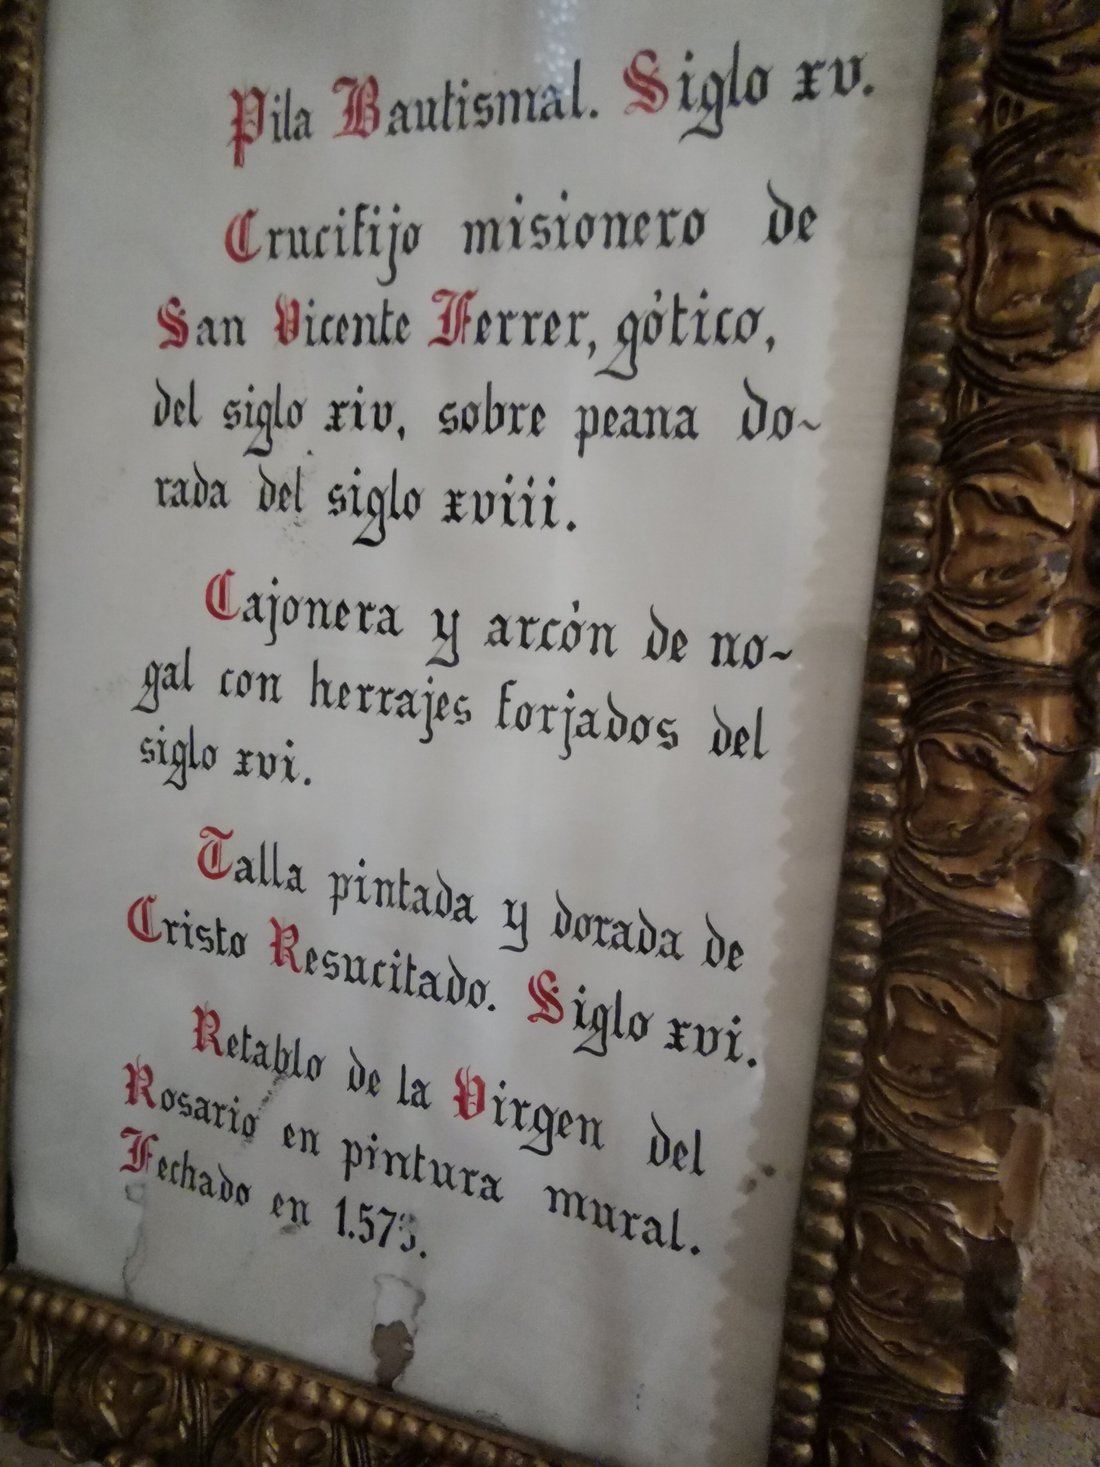 Pila Bautismal. Siglo xv.
Crucifijo misionero de
San Vicente Ferrer, gótico,
del siglo xiv, sobre peana do~
rada del siglo xviii.
Cajonera y arcón de no~
gal con herrajes forjados del
siglo xvi.
Talla pintada y dorada de
Cristo Resucitado. Siglo xvi.
Retablo de la Virgen del
Rosario en pintura mural.
Fechado en